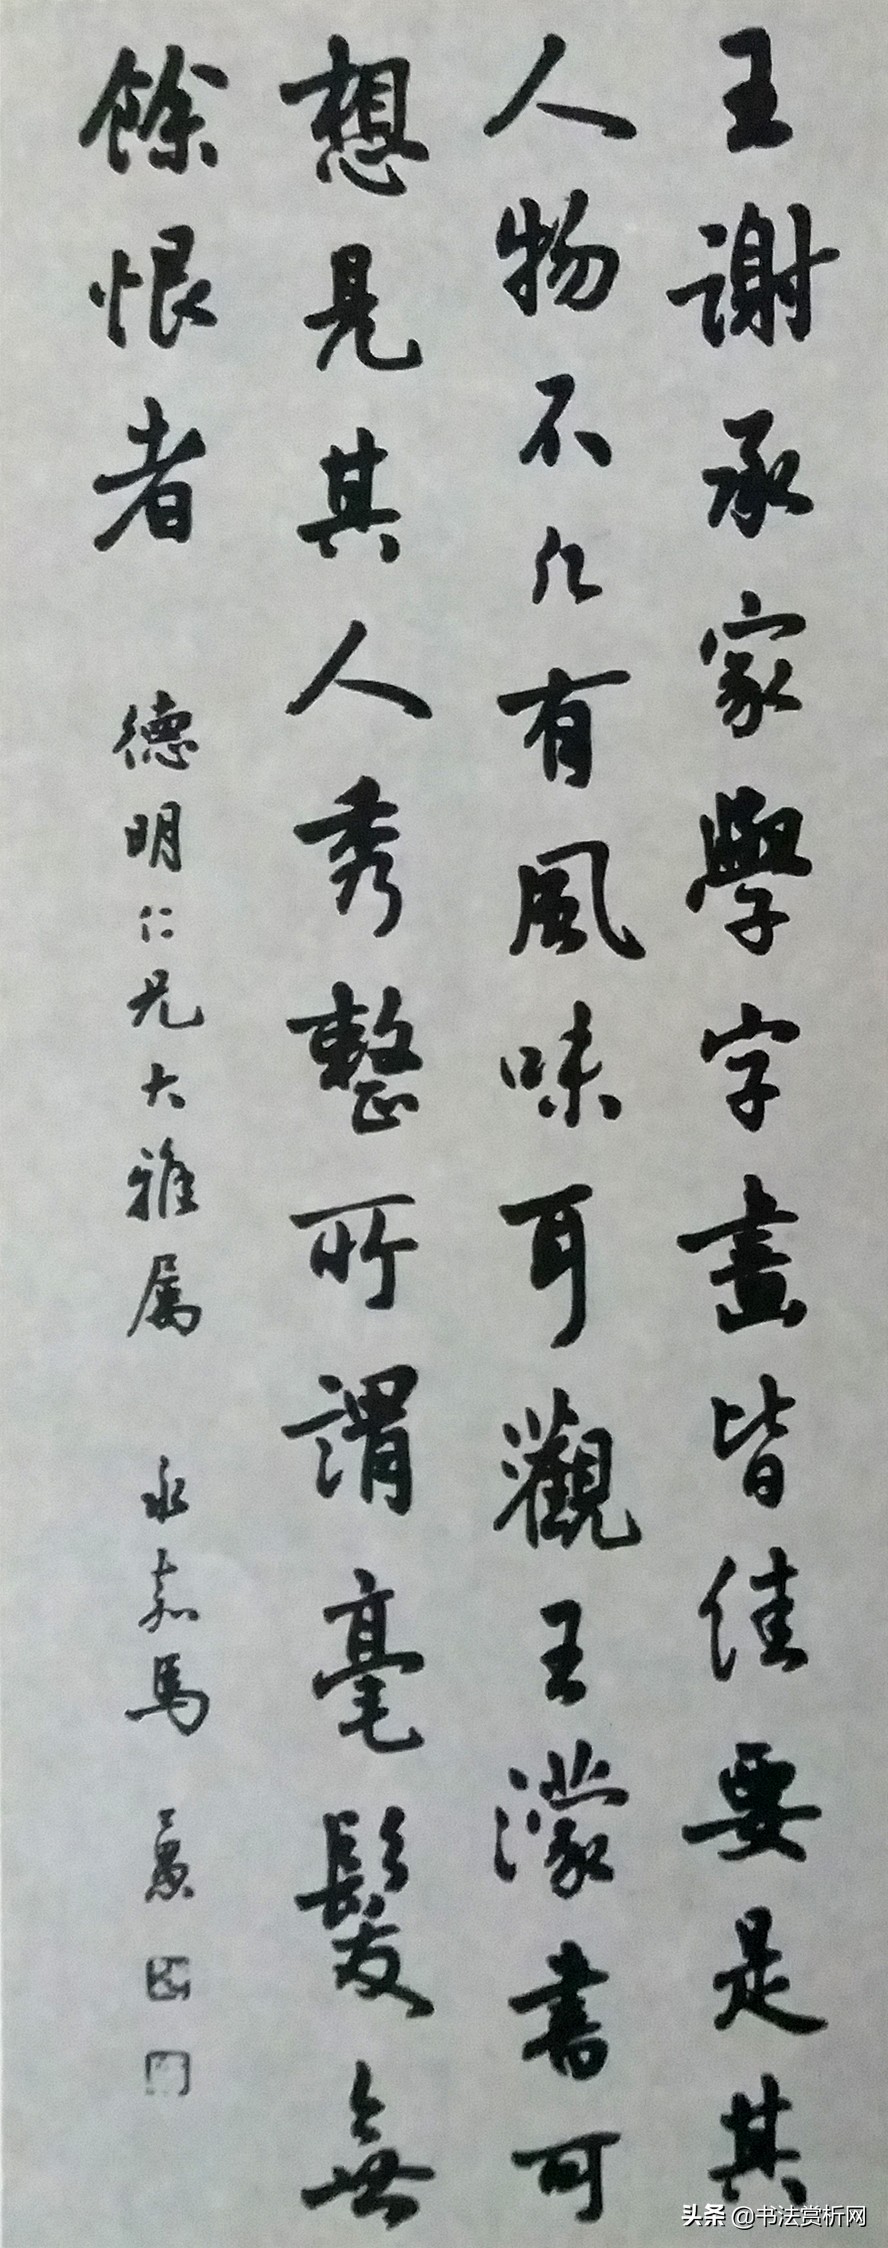 王謝承家學字畫皆佳要是其
人物不凡有風味耳觀王濛書可
想見其人秀整所謂毫髮無
餘恨者 德明仁兄大雅屬 永嘉馬公愚
头条 @书法赏析网